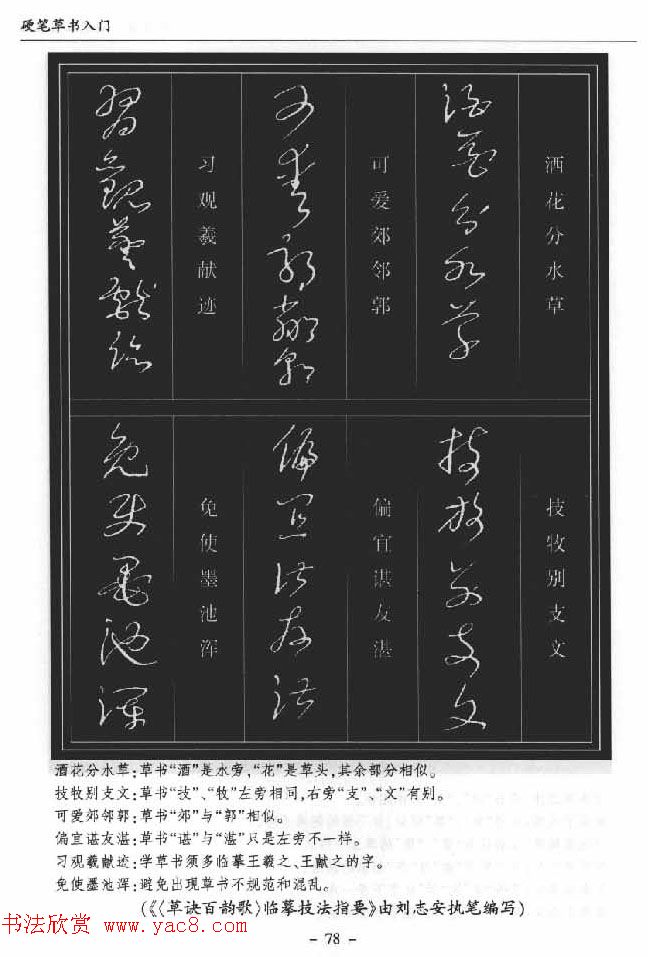 硬笔草书入门
洒花分水草
可爱郊邻郭
习观羲献迹
技牧别支文
偏宜谌友湛
免使墨池浑
洒花分水草:草书“洒”是水旁,“花”是草头,其余部分相似。
技牧别支文:草书“技”、“牧”左旁相同,右旁“支”、“文”有别。
可爱郊邻郭:草书“郊”与“郭”相似。
偏宜谌友湛:草书“谌”与“湛”只是左旁不一样。
习观羲献迹:学草书须多临摹王羲之、王献之的字。
免使墨池浑:避免出现草书不规范和混乱。
(《〈草诀百韵歌〉临摹技法指要》由刘志安执笔编写)
书法欣赏 www.yac8.com
- 78 -